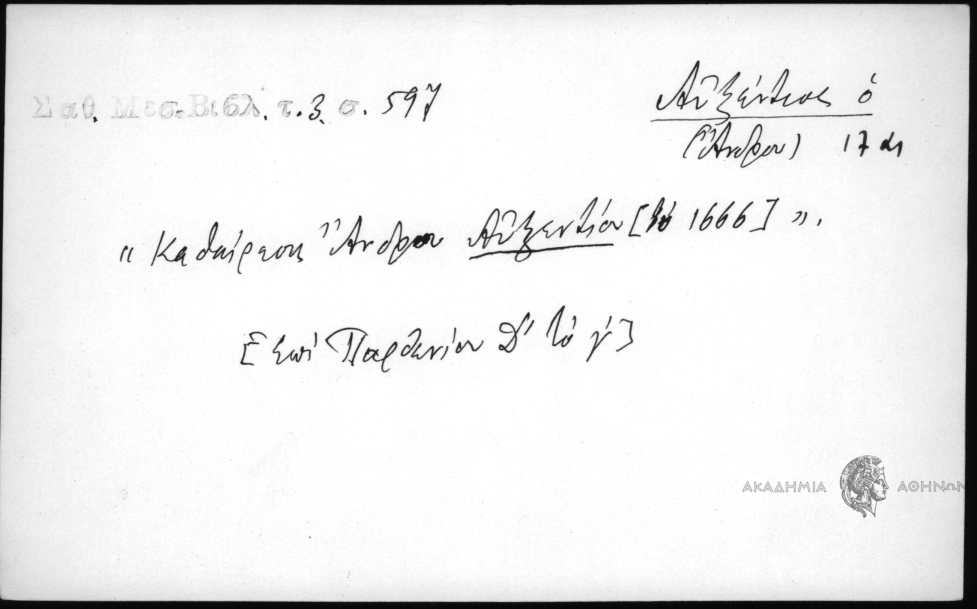 Σαθ. Μεσ. Βιβλ. τ. 3. σ. 597
Αὐξέντιος ὁ
(Ἄνδρου) 17 αι
« Καθαίρεσις Ἄνδρου Αὐξεντίου [τὸ 1666] ».
[Ἐπὶ Παρθενίου Δ' τὸ γ']
ΑΚΑΔΗΜΙΑ ΑΘΗΝΩΝ